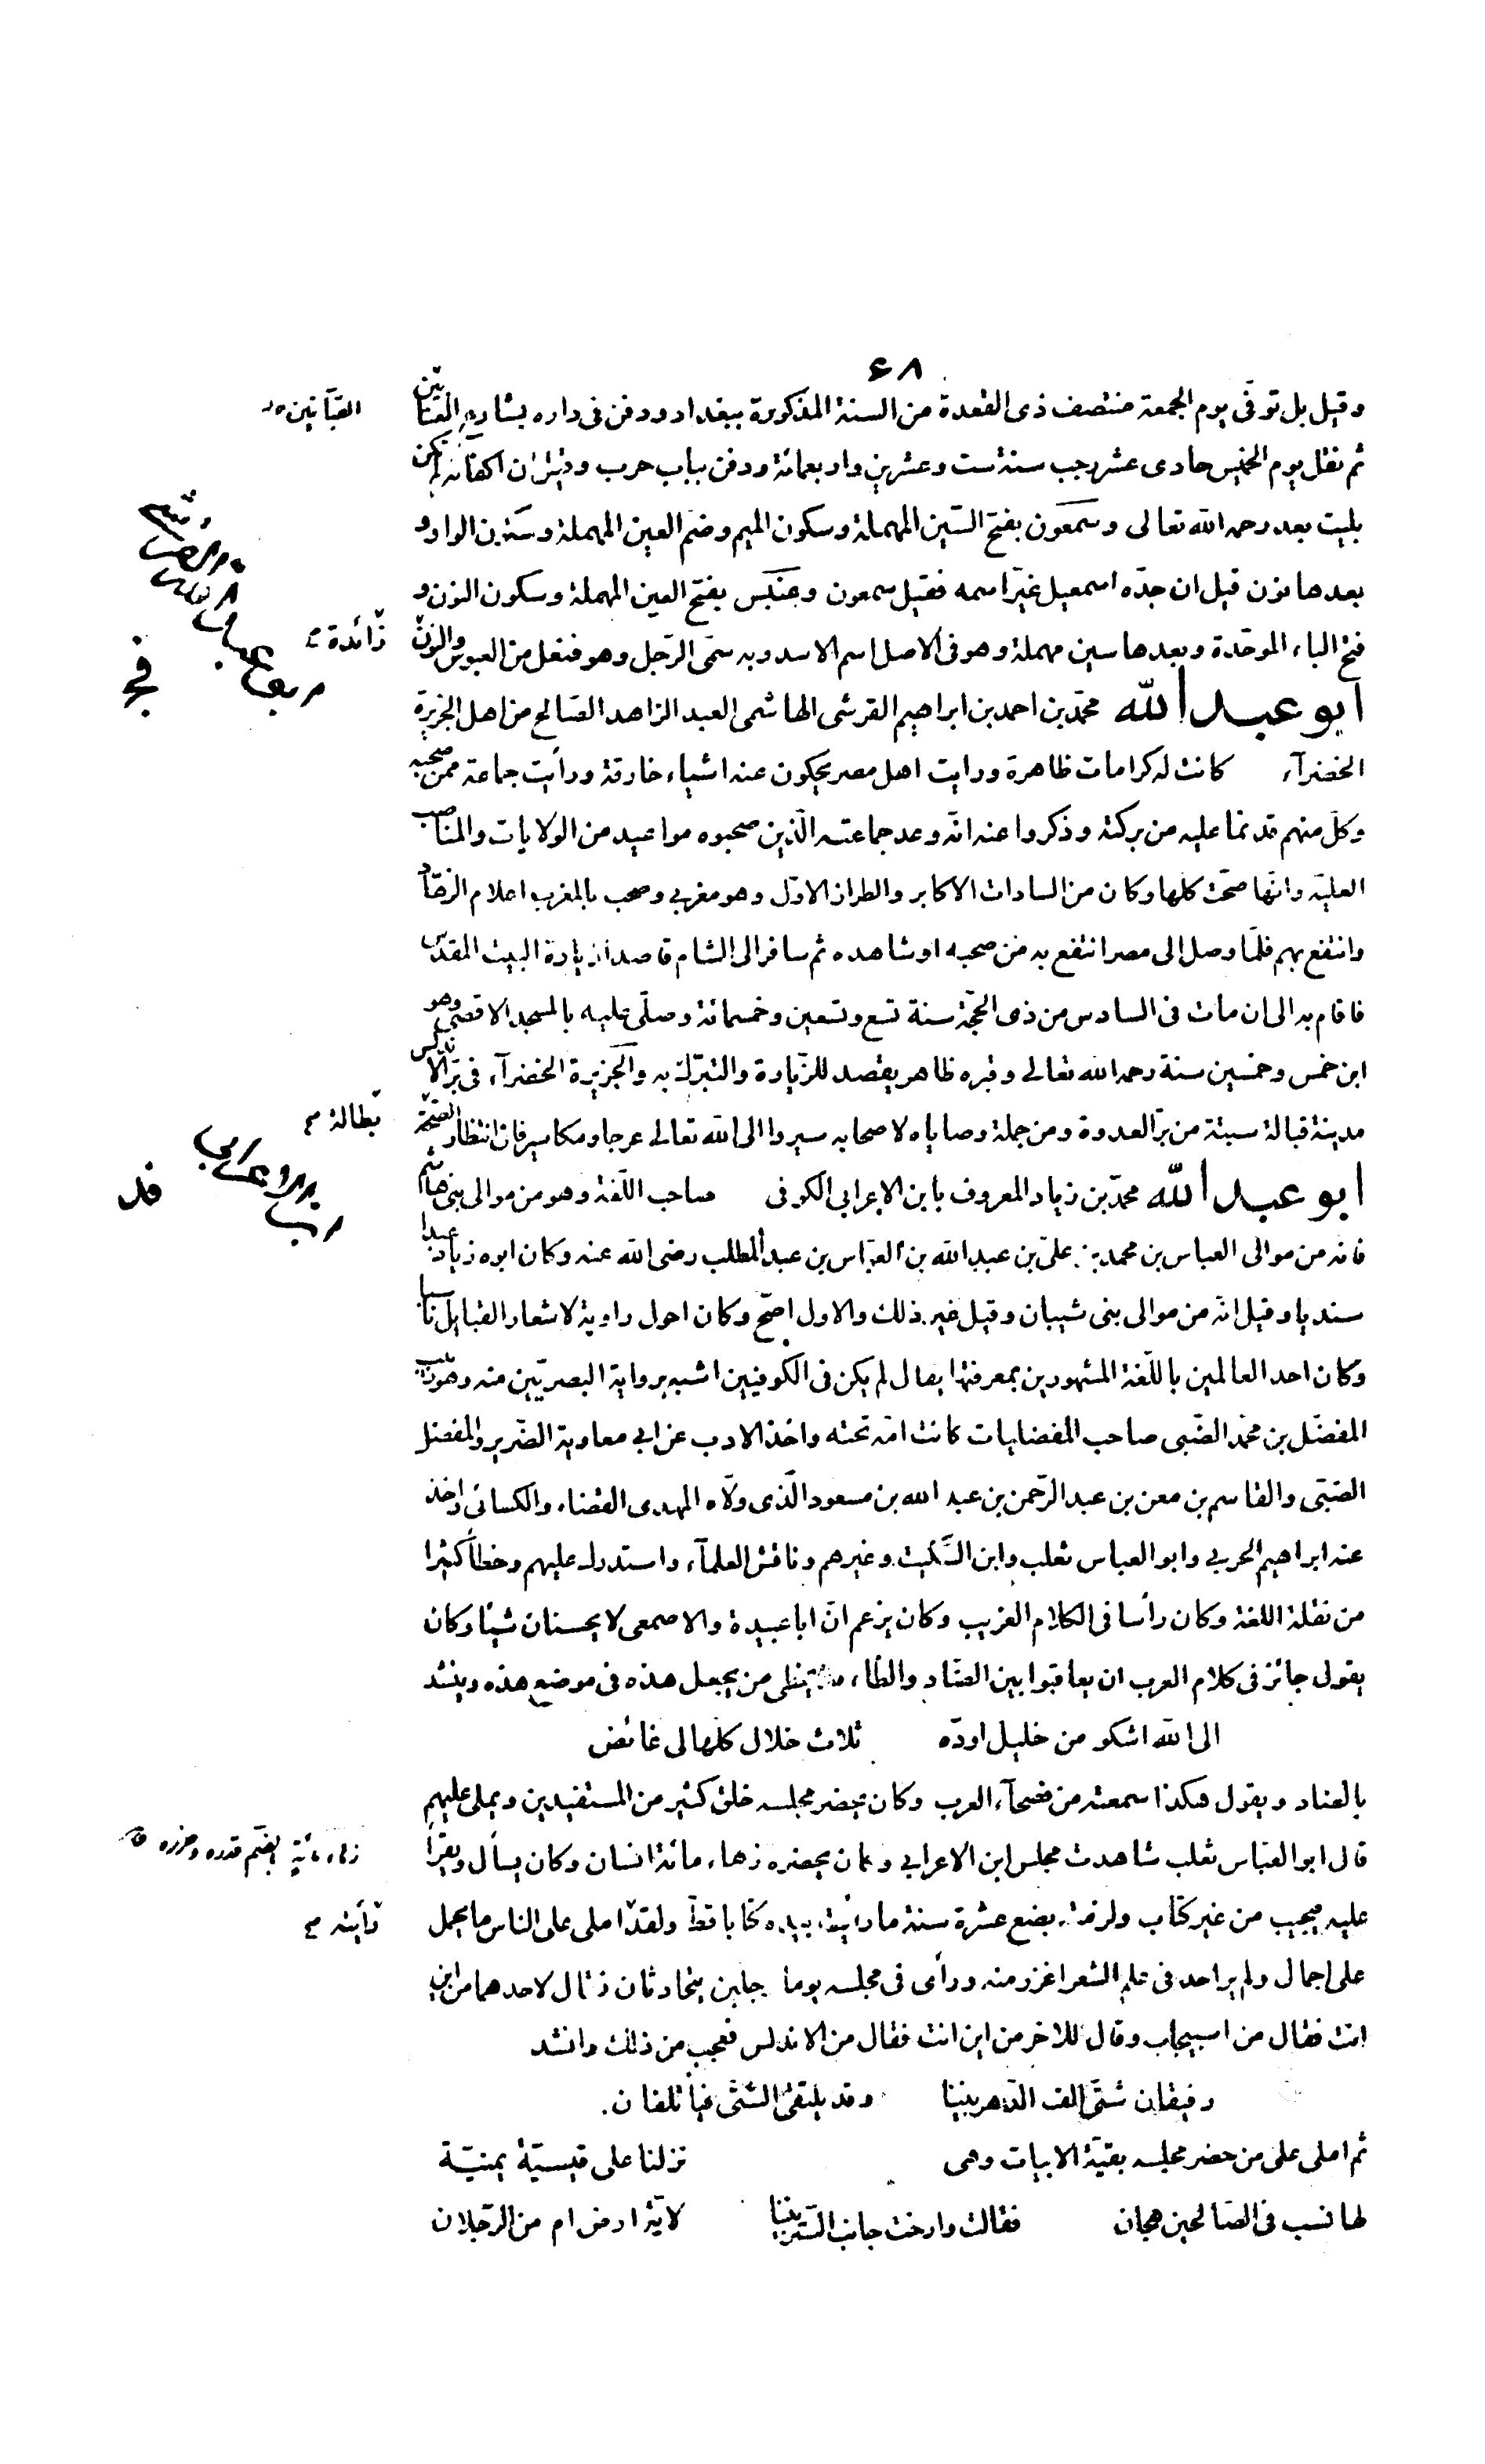 ۶۸
وقيل بل توفّى يوم الجمعة منتصف ذى القعدة من السنة المذكورة ببغداد ودفن فى داره بشارع العتابين
القبّانين
ثم نقل يوم الخميس حادى عشر رجب سنة ست وعشرين واربعمائة ودفن بباب حرب وقيل ان اكفانه لم تكن
بليت بعد رحمه الله تعالى وسمعون بفتح السّين المهملة وسكون الميم وضم العين المهملة وسكون الواو و
بعدها نون قيل ان جدّه اسمعيل غيّر اسمه فقيل سمعون وعنبس بفتح العين المهملة وسكون النون و
فتح الباء الموحّدة وبعدها سين مهملة وهو فى الاصل اسم الاسد وبه سمّى الرّجل وهو فنعل من العبوس والنون
زائدة
ابو عبد الله محمّد بن احمد بن ابراهيم القرشى الهاشمى العبد الزاهد الصّالح من اهل الجزيرة
الخضرآء كانت له كرامات ظاهرة ورايت اهل مصر يحكون عنه اشياء خارقة ورأيت جماعة ممن صحبه
وكلّ منهم قد نما عليه من بركته وذكروا عنه انّه وعد جماعته الّذين صحبوه مواعيد من الولايات والمناصب
العليّة وانّها صحّت كلها وكان من السادات الاكابر والطراز الاوّل وهو مغربي وصحب بالمغرب اعلام الزهّاد
وانتفع بهم فلمّا وصل الى مصر انتفع به من صحبه او شاهده ثم سافر الى الشام قاصدا زيارة البيت المقدّس
فاقام به الى ان مات فى السادس من ذى الحجّة سنة تسع وتسعين وخمسمائة وصلّى عليه بالمسجد الاقصى وهو
ابن خمس وخمسين سنة رحمه الله تعالى وقبره ظاهر يقصد للزّيارة والتبرّك به والجزيرة الخضرآء فى برّ الاندلس
مدينة قبالة سبتة من برّ العدوة ومن جملة وصاياه لاصحابه سيروا الى الله تعالى عرجا ومكاسير فان انتظار الصحّة
بطالة
ابو عبد الله محمّد بن زياد المعروف بابن الاعرابي الكوفى صاحب اللّغة وهو من موالى بنى هاشم
فانه من موالى العباس بن محمد بن على بن عبد الله بن العبّاس بن عبد المطلب رضى الله عنه وكان ابوه زياد عبدا
سنديا وقيل انّه من موالى بنى شيبان وقيل غير ذلك والاول اصحّ وكان احول راوية لاشعار القبايل ناسبا
وكان احد العالمين باللّغة المشهورين بمعرفتها يقال لم يكن فى الكوفيين اشبه برواية البصريّين منه وهو ربيب
المفضّل بن محمّد الضّبى صاحب المفضليات كانت امّه تحته واخذ الادب عن ابي معاوية الضّرير والمفضل
الضبّى والقاسم بن معن بن عبد الرّحمن بن عبد الله بن مسعود الّذى ولّاه المهدى القضاء والكسائى واخذ
عنه ابراهيم الحربي وابو العباس ثعلب وابن السّكيت وغيرهم وناقش العلمآء واستدرك عليهم وخطأ كثيرا
من نقلة اللغة وكان رأسا فى الكلام الغريب وكان يزعم انّ ابا عبيدة والاصمعى لا يحسنان شيئا وكان
يقول جائز فى كلام العرب ان يعاقبوا بين الضّاد والظّاء فلا يخطى من يجعل هذه فى موضع هذه وينشد
الى الله اشكو من خليل اودّه ثلاث خلال كلها لى غائض
بالضاد ويقول هكذا سمعته من فصحآء العرب وكان يحضر مجلسه خلق كثير من المستفيدين ويملى عليهم
قال ابو العبّاس ثعلب شاهدت مجلس ابن الاعرابي وكان يحضره زهاء مائة انسان وكان يسأل ويقرأ
زهاء مائة بالضم قدره وحزره
عليه فيجيب من غير كتاب ولزمته بضع عشرة سنة ما رأيت بيده كتابا قطّ ولقد املى على الناس ما يحمل
رأيته
على اجمال ولم ير احد فى علم الشعر اغزر منه ورأى فى مجلسه يوما رجلين يتحادثان فقال لاحدهما من اين
انت فقال من اسبيجاب وقال للاخر من اين انت فقال من الاندلس فعجب من ذلك وانشد
رفيقان شتّى الف الدّهر بيننا وقد يلتقى الشتّى فيأتلفان
ثم املى على من حضر مجلسه بقيّة الابيات وهى نزلنا على قيسيّة يمنيّة
لها نسب فى الصّالحين هجان فقالت وارخت جانب السّتر بيننا لايّة ارض ام من الرّجلان